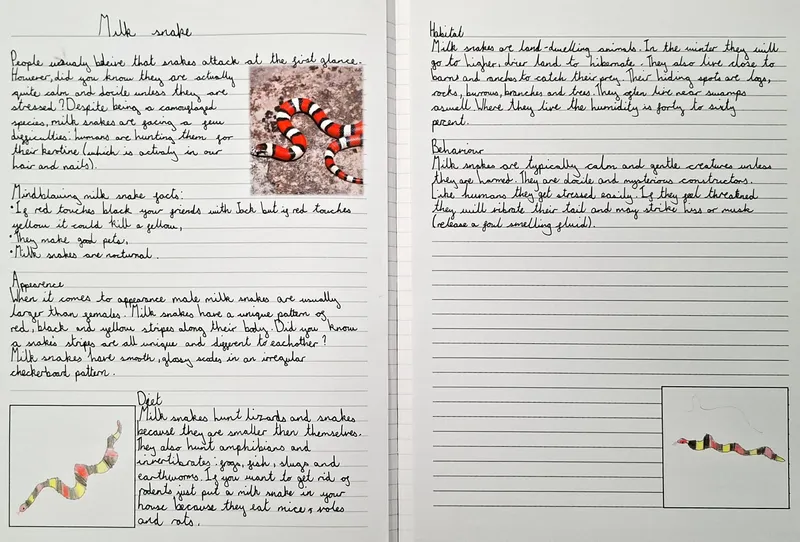 Milk snake
People usually beleive that snakes attack at the first glance.
However, did you know they are actually
quite calm and docile unless they are
stressed? Despite being a camouflaged
species, milk snakes are facing a few
difficulties: humans are hunting them for
their keratine (which is activly in our
hair and nails).
Mindblowing milk snake facts:
•If red touches black your friends with Jack but if red touches
yellow it could kill a fellow,
•They make good pets,
•Milk snakes are nocturnal.
Appearence
When it comes to appearence male milk snakes are usually
larger than females. Milk snakes have a unique pattern of
red, black and yellow stripes along their body. Did you know
a snake's stripes are all unique and different to eachother?
Milk snakes have smooth, glossy scales in an irregular
checkerboard pattern.
Diet
Milk snakes hunt lizards and snakes
because they are smaller then themselves.
They also hunt amphibians and
invertibrates: frogs, fish, slugs and
earthworms. If you want to get rid of
rodents just put a milk snake in your
house because they eat mice, voles
and rats.
Habitat
Milk snakes are land-dwelling animals. In the winter they will
go to higher, drier land to hibernate. They also live close to
barns and ranches to catch their prey. Their hiding spots are logs,
rocks, burrows, branches and trees. They often live near swamps
aswell. Where they live the humidity is forty to sixty
percent.
Behaviour
Milk snakes are typically calm and gentle creatures unless
they are harmed. They are docile and mysterious constrictors.
Like humans they get stressed easily. If they feel threatened
they will vibrate their tail and may strike hiss or musk
(release a foul smelling fluid).